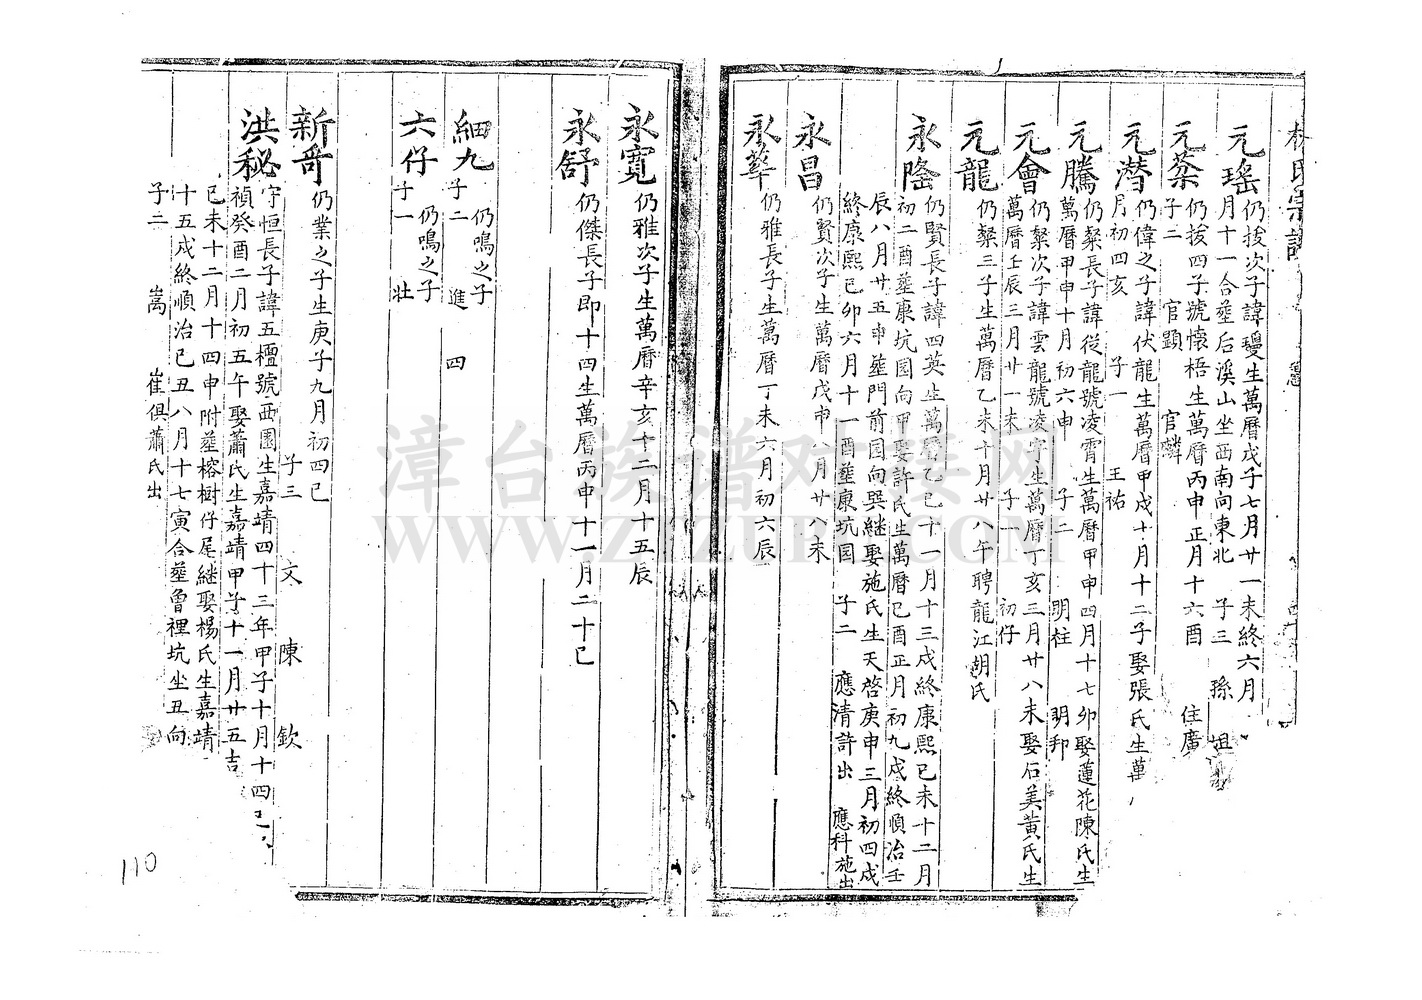 林氏宗譜
元瑤
仍拔次子諱瓊生萬曆戊子七月廿一未終六月
月十一合塟后溪山坐西南向東北 子三 孫 祖
元棻
仍拔四子號懷梧生萬曆丙申正月十六酉 住廣
子二 官顕 官麟
元潛
仍偉之子諱伏龍生萬曆甲戌十月十二子娶張氏生萬
月初四亥 子一 王祐
元騰
仍粲長子諱從龍號凌霄生萬曆甲申四月十七卯娶蓮花陳氏生
萬曆甲申十月初六申 子二 明柱 明邦
元會
仍粲次子諱雲龍號凌宇生萬曆丁亥三月廿八未娶石美黄氏生
萬曆壬辰三月廿一未 子十 初仔
元龍
仍粲三子生萬曆乙未十月廿八午聘龍江胡氏
永隆
仍賢長子諱四英生萬曆乙巳十一月十三戌終康熙己未十二月
初二酉塟康坑园向甲娶許氏生萬曆己酉正月初九戌終順治壬
辰八月廿五申塟門前园向巽継娶施氏生天啓庚申三月初四戌
終康熙己卯六月十一酉塟康坑园 子二 應清許出 應科施出
永昌
仍賢次子生萬曆戊申八月廿八未
永華
仍雅長子生萬曆丁未六月初六辰
永寬
仍雅次子生萬曆辛亥十二月十五辰
永舒
仍傑長子即十四生萬曆丙申十一月二十己
細九
仍鳴之子
子二 進 四
六仔
仍鳴之子
子一 壯
新哥
仍業之子生庚子九月初四己
子三 文 陳 欽
洪秘
守恒長子諱五檀號西園生嘉靖四十三年甲子十月十四己
禎癸酉二月初五午娶蕭氏生嘉靖甲子十一月廿五吉
己未十二月十四申附塟榕樹仔尾継娶楊氏生嘉靖
十五戌終順治己丑八月十七寅合塟魯裡坑坐丑向
子二 嵩 崔俱蕭氏出
110
漳台族谱对接网
WWW.ZTZUPU.COM